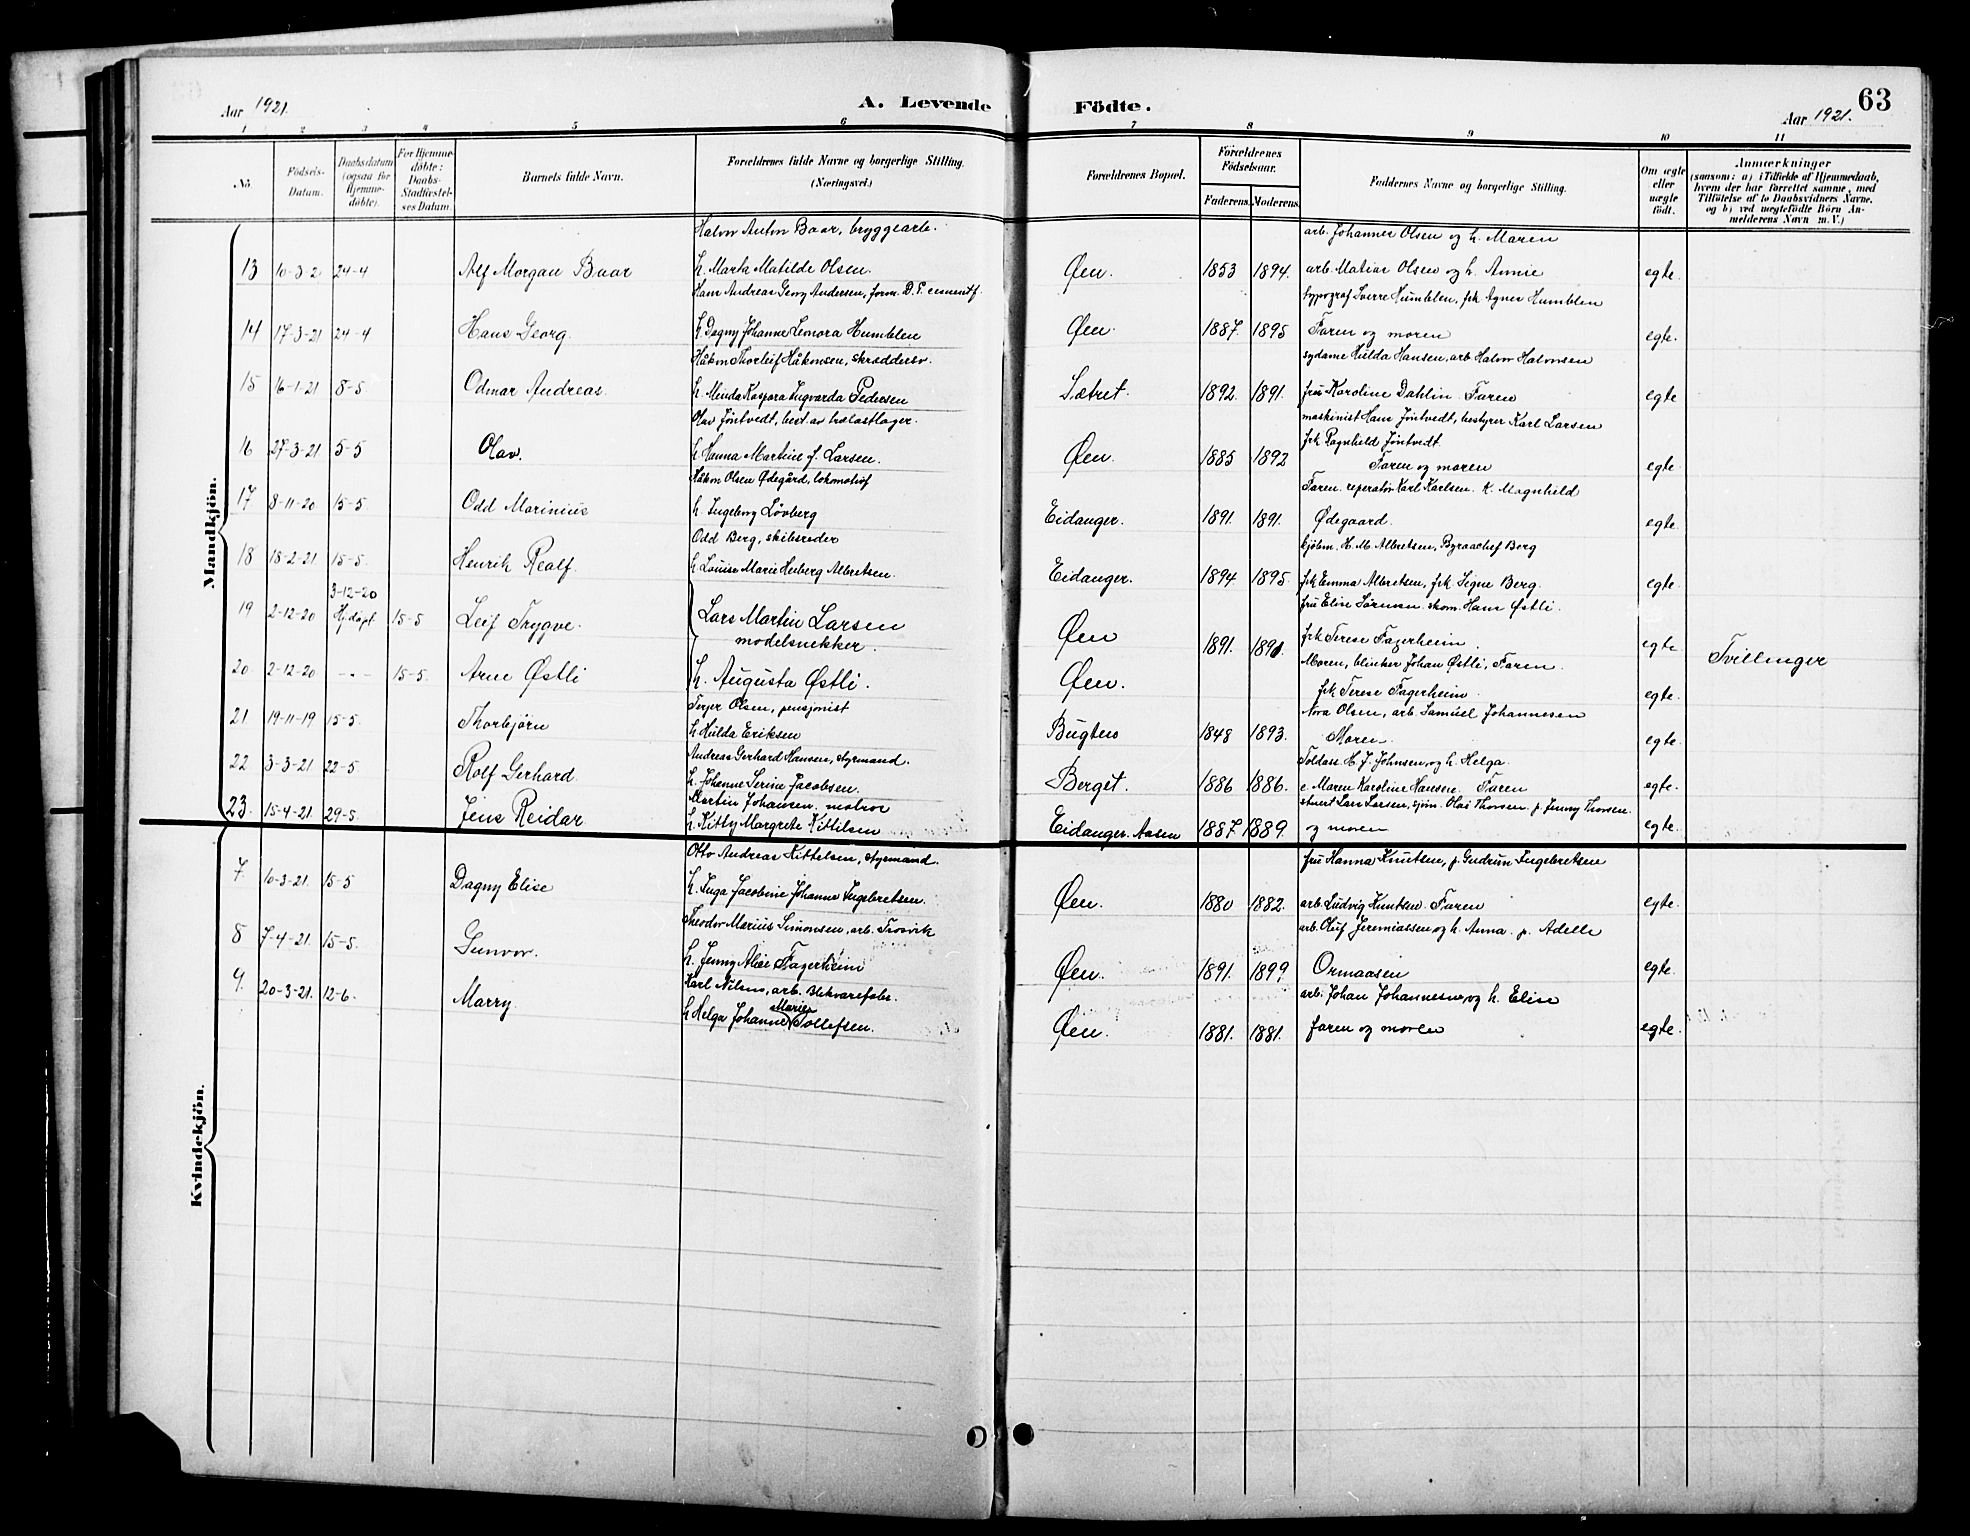 Aar 1921.
A. Levende Födte.
Aar 1921.
63
1 2 3 4 5 6 7 8 9 10 11
No. Födsels-Datum. Daabsdatum (ogsaa for Hjemme-döbte). For Hjemme-döbte: Daabs-Stadfæstel-ses Datum. Barnets fulde Navn. Forældrenes fulde Navne og borgerlige Stilling. (Næringsvei.) Forældrenes Bopæl. Forældrenes Födselsaar. Faderens. Moderens. Faddernes Navne og borgerlige Stilling. Om ægte eller uægte født. Anmærkninger (saasom: a) i Tilfælde af Hjemmedaab, hvem der har forrettet samme, med Tilföielse af to Daabsvidners Navne, og b) ved uægtefödte Börn An-melderens Navn m. V.)
Mandkjön.
Halvor Anton Baar, bryggearb. arb. Johannes Olsen og h. Maren
13 10-3-2 24-4 Alf Morgan Baar h. Marta Matilde Olsen. Øen. 1853 1894. arb. Matias Olsen og h. Annie egte.
Hans Andreas Georg Andersen, form. D. P. cementf. typograf Sverre Humblen, frk Agnes Humblen
14 17-3-21 24-4 Hans Georg. h Dagny Johanne Lenora Humblen Øen. 1887. 1895 Faren og moren egte.
Håkon Thorleif Håkonsen, skræddersv. sydame Hulda Hansen, arb Halvor Halvorsen
15 16-1-21 8-5. Odmar Andreas. h. Minda Kaspara Ingvarda Pedersen Sætret. 1892. 1891. fru Karoline Dahlin. Faren egte
Olav Jöntvedt, best. av trælastlager. maskinist Hans Jöntvedt, bestyrer Karl Larsen
16 27-3-21 5-5 Olav. h Hanna Martine f. Larsen. Øen. 1885 1892 frk Ragnhild Jöntvedt. Faren og moren egte
Håkon Olsen Ødegård, lokomotivf Faren. reperatör Karl Karlsen. K. Magnhild
17. 8-11-20 15-5. Odd Marinius h. Ingeborg Lövberg Eidanger. 1891. 1891. Ødegaard. egte.
Odd Berg, skibsreder kjöbm. H. M. Albretsen, Byraachef Berg
18 18-2-21 15-5. Henrik Realf. h Louise Marie Heiberg Albretsen. Eidanger. 1894. 1895. frk Emma Albretsen, frk. Signe Berg. egte.
fru Elise Sörensen. skom. Hans Østli.
19 2-12-20 3-12-20 Hj.döpt 15-5 Leif Trygve. Lars Martin Larsen modelsnekker. Øen 1891. 1891. frk Terese Fagerheim. egte Tvillinger
Moren, blinker Johan Østli, Faren.
20 2-12-20 - - - 15-5. Arne Østli h. Augusta Østli. Øen. frk Terese Fagerheim. egte.
Terjer Olsen, pensjonist Nora Olsen, arb. Samuel Johannesen
21 19-11-19 15-5. Thorbjörn h Hulda Eriksen Bugten 1848 1893. Moren. egte.
Andreas Gerhard Hansen, styrmand. Toldass. H. J. Johnsen, og h. Helga.
22 3-3-21 22-5. Rolf Gerhard. h. Johanne Serine Jacobsen. Berget. 1886 1886. e. Maren Karoline Hansen. Faren egte.
Martin Johansen. matros stuert Lars Larsen, sjöm. Olaf Thorsen. p. Jenny Thorsen
23. 15-4-21. 29-5. Jens Reidar h. Kitty Margrete Kittilsen Eidanger. Aasen 1887. 1889. og moren egte.
Kvindekjön.
Otto Andreas Kittelsen, styrmand. fru Hanna Knutsen, p. Gudrun Ingebretsen
7. 10-3-21. 15-5 Dagny Elise h. Inga Jacobine Johanne Ingebretsen. Øen. 1880 1882. arb. Ludvig Knutsen. Faren egte.
Theodor Marius Simonsen, arb. Trosvik arb. Oluf Jeremiassen og h. Anna. p. Adelle
8 7-4-21. 15-5. Gunvor. h. Jenny Alise Fagerheim Øen. 1891. 1899. Ormaasen egte.
Karl Nilsen, arb. Blikvarefabr. arb. Johan Johannesen og h. Elise
9. 20-3-21. 12-6. Marry. h Helga Johanne Marie Tollefsen. Øen. 1881. 1881. faren og moren egte.